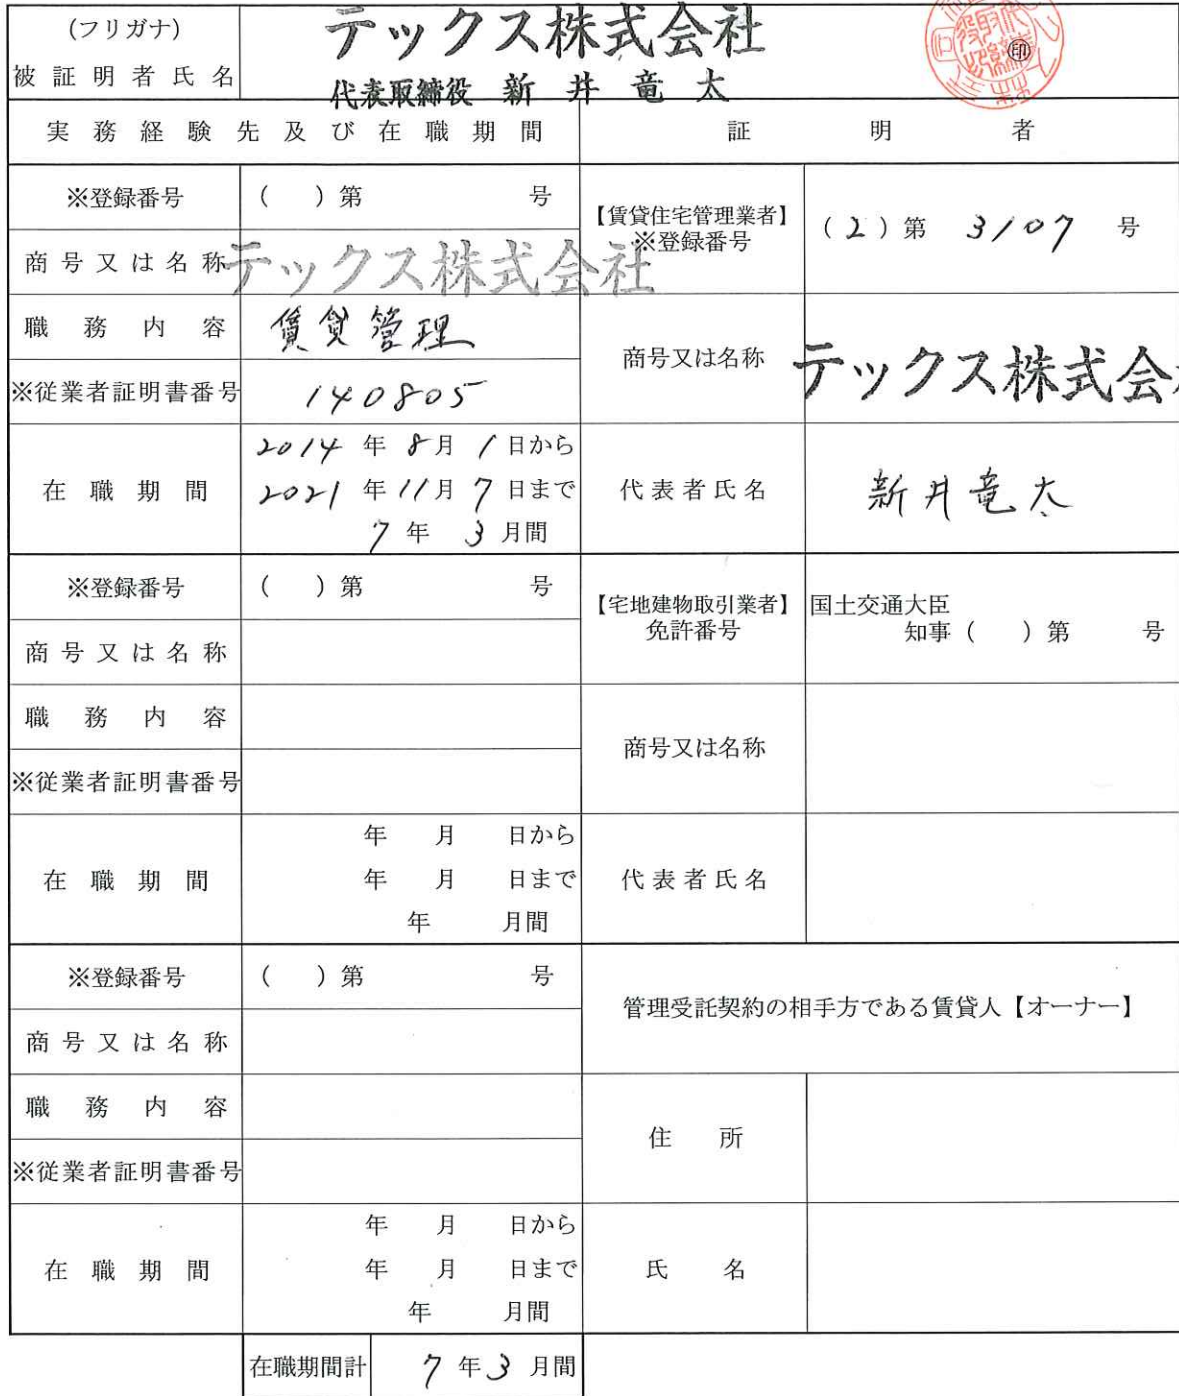 (フリガナ)
被証明者氏名
テックス株式会社
代表取締役 新井竜太
㊞
実務経験先及び在職期間
証明者
※登録番号
( )第 号
商号又は名称
テックス株式会社
職務内容
賃貸管理
※従業者証明書番号
140805
在職期間
2014年8月1日から
2021年11月7日まで
7年3月間
【賃貸住宅管理業者】
※登録番号
(2)第 3107 号
商号又は名称
テックス株式会
代表者氏名
新井竜太
※登録番号
( )第 号
商号又は名称
職務内容
※従業者証明書番号
在職期間
年 月 日から
年 月 日まで
年 月間
【宅地建物取引業者】
免許番号
国土交通大臣
知事( )第 号
商号又は名称
代表者氏名
※登録番号
( )第 号
商号又は名称
職務内容
※従業者証明書番号
在職期間
年 月 日から
年 月 日まで
年 月間
管理受託契約の相手方である賃貸人【オーナー】
住所
氏名
在職期間計
7年3月間